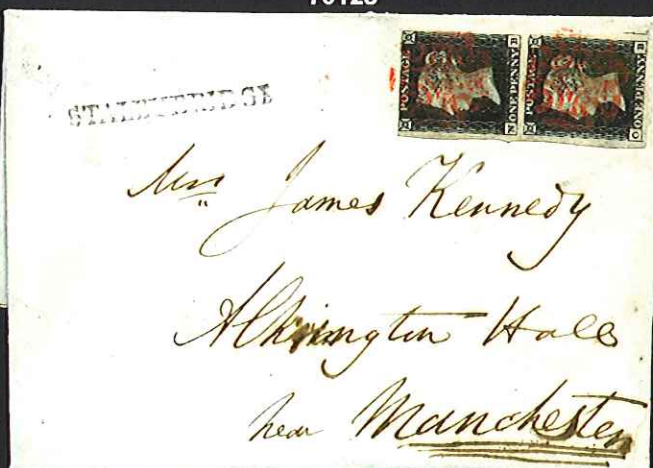 STALEYBRIDGE
POSTAGE
ONE PENNY
POSTAGE
ONE PENNY
Mrs James Kennedy
Alkrington Hall
near Manchester